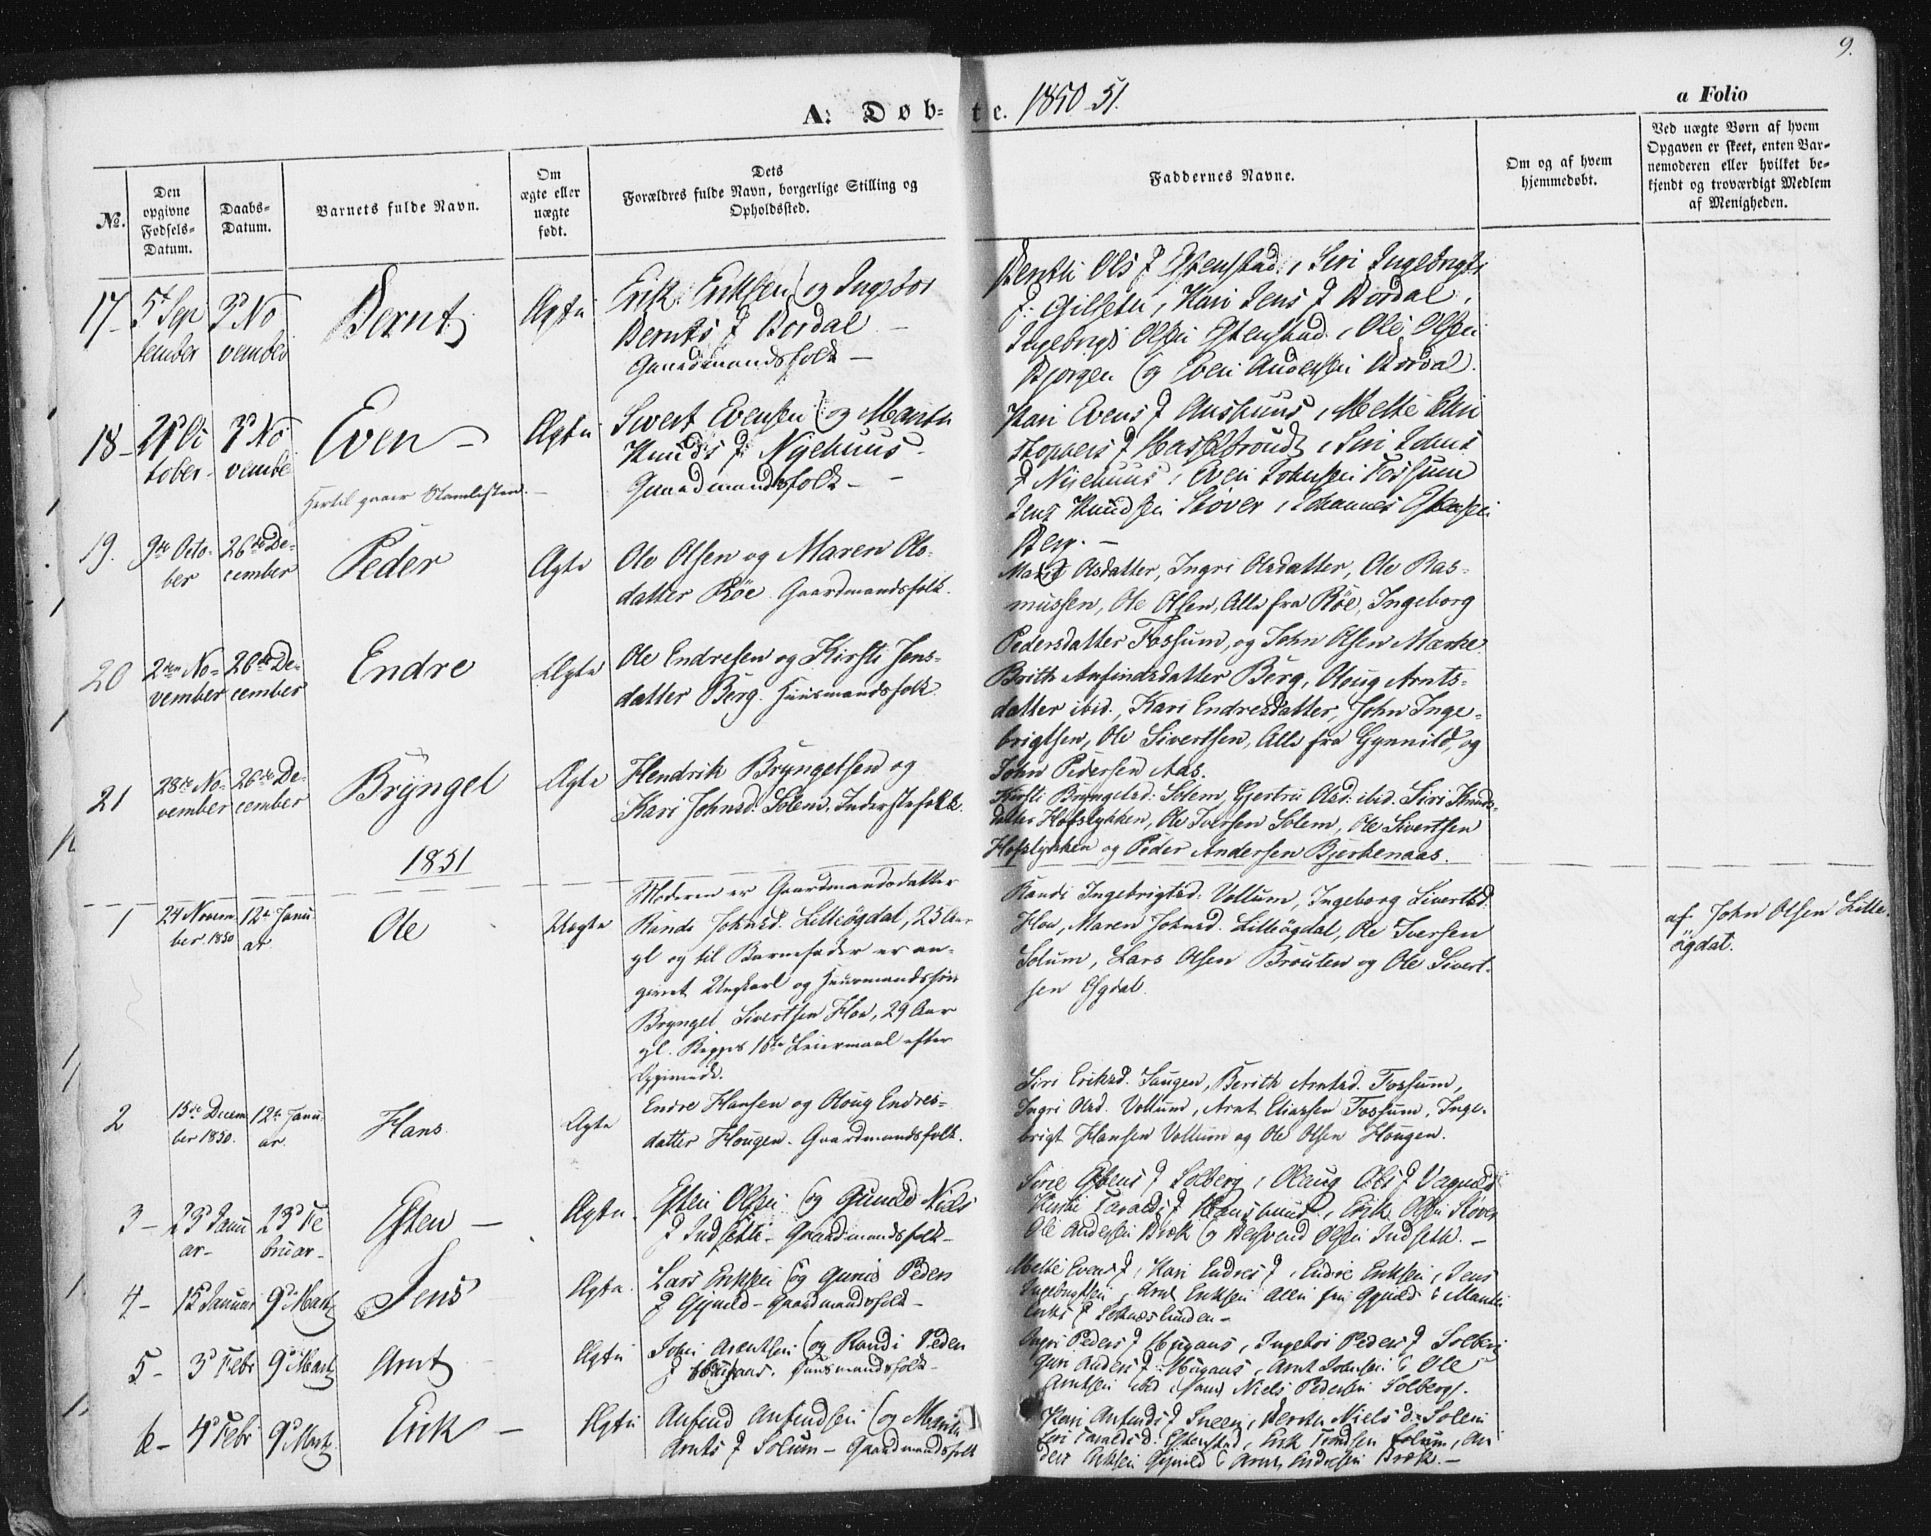 9.
A: Døb-te. 1850-51.
a Folio
No.
Den opgivne Fødsels-Datum.
Daabs-Datum.
Barnets fulde Navn.
Om ægte eller uægte født.
Dets Forældres fulde Navn, borgerlige Stilling og Opholdssted.
Faddernes Navne.
Om og af hvem hjemmedøbt.
Ved uægte Børn af hvem Opgaven er skeet, enten Barnemoderen eller hvilket bekjendt og troværdigt Medlem af Menigheden.
17-
5t Sep
tember
3d No
vember
Bernt
Ægte
Erik Eriksen og Ingebor
Bernts D Bordal -
Gaardmandsfolk -
Berith Ols D Estenstad, Siri Ingebrigts
D: Gilseter, Kari Jens D Bordal,
Ingebrigt Olsen Estenstad, Ole Olsen
Bjørgen og Even Andersen Bordal.
18-
October
3d No
vember
Even -
Ægte
Sivert Evensen og Marith
Knuds D: Nyehuus -
Gaardmandsfolk -
Hertil gaaer Stamlisten. -
Kari Evens D Aashuus, Mette
D Hasselbroud, Siri Johns
D Nyehuus, Even Johnsen Fossum
Jens Knudsen Støver, Johannes Estensen
19.
9de Octo-
ber
26de De-
cember
Peder
Ægte
Ole Olsen og Maren Ols-
datter Röe. Gaardmandsfolk.
Marit Olsdatter, Ingri Olsdatter, Ole Ras-
mussen, Ole Olsen, Alle fra Röe, Ingeborg
Pedersdatter Fossum, og John Olsen Marke
20
2den No-
vember
26de De-
cember
Endre
Ægte
Ole Endresen og Kirsti Jens-
datter Berg. Huusmandsfolk.
Brith Anfindsdatter Berg, Oloug Arnts-
datter ibid., Kari Endresdatter, John Inge-
brigtsen, Ole Sivertsen, Alle fra Gynnild, og
John Pedersen Aas.
21
28de No-
vember
26de De-
cember
Bryngel
Ægte
Hendrik Bryngelsen og
Kari Johnsd. Solem. Inderstefolk.
Kirsti Bryngelsd: Solem, Gjertru Olsd: ibid. Siri Knuds-
datter Hofslykken, Ole Iversen Solem, Ole Sivertsen
Hofslykken og Peder Andersen Bjerkenaas.
1851
1
24 Novem-
ber 1850
12te Janu-
ar
Ole
Uægte
Moderen er Gaardmandsdatter
Randi Johnsd. Lilleögdal, 25 Aar
gl og til Barnefader er an-
givet Ungkarl og Huusmandssön
Bryngel Sivertsen Hov, 29 Aar
gl. Begges 1ste Leiermaal efter
Opgivende.
Randi Ingebrigtsd: Vollum, Ingeborg Sivertsd.
Hov, Maren Johnsd. Lilleögdal, Ole Iversen
Solum, Lars Olsen Brouten og Ole Sivert-
sen Ögdal.
af John Olsen Lille-
ögdal.
2
15de Decem-
ber 1850.
12te Janu-
ar.
Hans
Ægte
Endre Hansen og Oloug Endres-
datter Hougen. Gaardmandsfolk.
Siri Eriksd. Haugen, Berith Arntsd. Fossum,
Ingri Olsd. Vollum, Arnt Eliassen Fossum, Inge-
brigt Hansen Vollum og Ole Olsen Hougen.
3-
23d Janu
ar-
23d Fe
bruar-
Esten -
Ægte.
Esten Olsen og Gunild Niels
D Indsette - Gaardmandsfolk -
Sirie Estens D Solberg, Olaug Ols D Vagnild
Kirsti Taralds D Hanshuus, Erik Olsen Støver
Ole Andersen Bræk og Berhvend Olsen Indsette. -
4-
12 Januar
9d Marts
Jens
Ægte.
Lars Eriksen og Gunil Peders
D Gynild - Gaardmandsfolk -
Mette Evens D, Kari Endres D, Endre Eriksen, Jens
Ingebrigtsen, Arnt Eriksen alle fra Gynild & Marith
5-
3d Febr
9d Marts
Arnt
Ægte
John Arentsen og Randi Peders
Huusmandsfolk -
Ingri Peders D Mugaas, Ingebor Peders D Solberg
Guri Anders D: Mugaas, Arnt Johnsen & Ole
Arntsen ibid samt Niels Pedersen Solberg.
6-
4d Febr
9d Marts
Erik -
Ægte
Anfind Anfindsen og Marith
Arnts D Solum - Gaardmandsfolk
Kari Anfinds D Sneen, Berthe Niels D: Solem
Siri Taralds D. Estenstad, Erik Trondsen Solum, An
ders Eriksen Gynild & Arnt Endresen Bræk. -